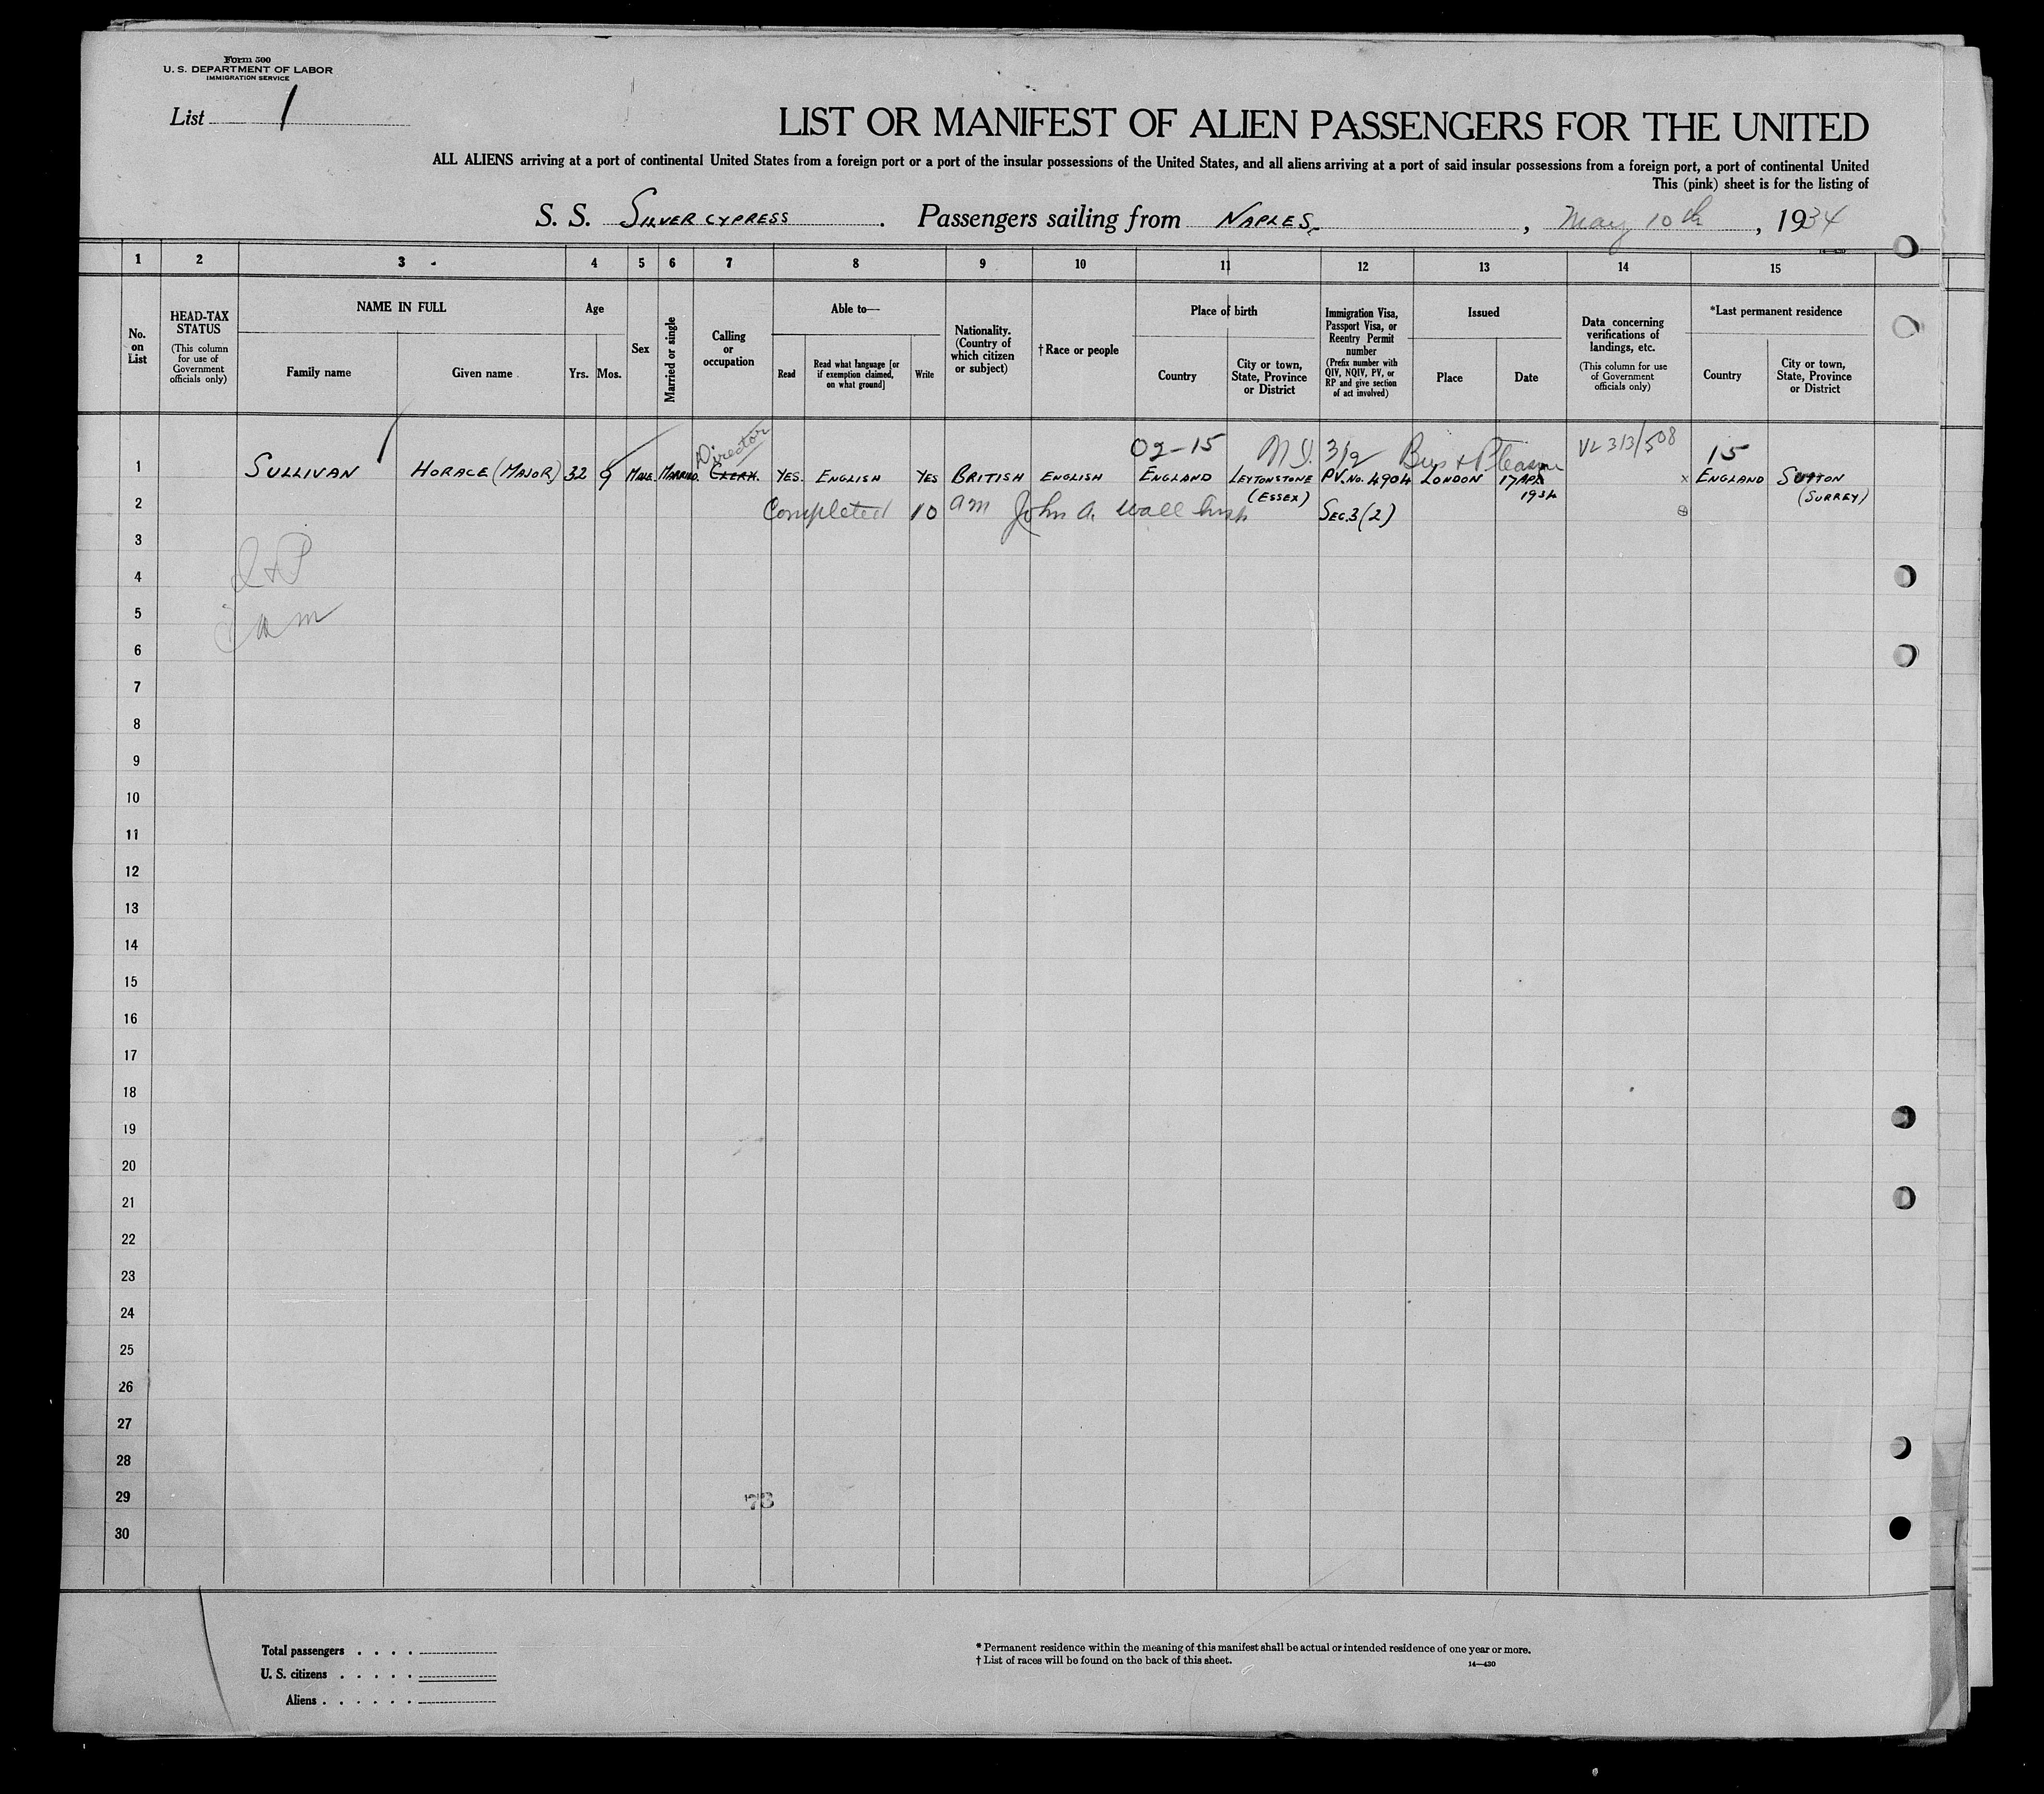 Form 500
U. S. DEPARTMENT OF LABOR
IMMIGRATION SERVICE
List 1
LIST OR MANIFEST OF ALIEN PASSENGERS FOR THE UNITED
ALL ALIENS arriving at a port of continental United States from a foreign port or a port of the insular possessions of the United States, and all aliens arriving at a port of said insular possessions from a foreign port, a port of continental United
This (pink) sheet is for the listing of
S. S. SILVERCYPRESS. Passengers sailing from NAPLES, May 10th, 1934
14—430
1 2 3 4 5 6 7 8 9 10 11 12 13 14 15
No. on List
HEAD-TAX STATUS
(This column for use of Government officials only)
NAME IN FULL
Family name
Given name
Age
Yrs.
Mos.
Sex
Married or single
Calling or occupation
Able to—
Read
Read what language [or if exemption claimed, on what ground]
Write
Nationality. (Country of which citizen or subject)
†Race or people
Place of birth
Country
City or town, State, Province or District
Immigration Visa, Passport Visa, or Reentry Permit number
(Prefix number with QIV, NQIV, PV, or RP and give section of act involved)
Issued
Place
Date
Data concerning verifications of landings, etc.
(This column for use of Government officials only)
*Last permanent residence
Country
City or town, State, Province or District
Director 02-15 3/2 Bus & Pleasure VL 313/508 15
1 SULLIVAN HORACE (MAJOR) 32 9 MALE MARRIED. CLERK. YES. ENGLISH YES BRITISH ENGLISH ENGLAND LEYTONSTONE PV. No. 4904 LONDON 17 APR x ENGLAND SUTTON
(ESSEX) 1934 (SURREY)
2 Completed 10 am John A. Wall Insp SEC. 3(2)
3
4
5
6
7
8
9
10
11
12
13
14
15
16
17
18
19
20
21
22
23
24
25
26
27
28
29
73
30
Total passengers . . . .
U. S. citizens . . . . .
Aliens . . . . . .
* Permanent residence within the meaning of this manifest shall be actual or intended residence of one year or more.
† List of races will be found on the back of this sheet.
14—430